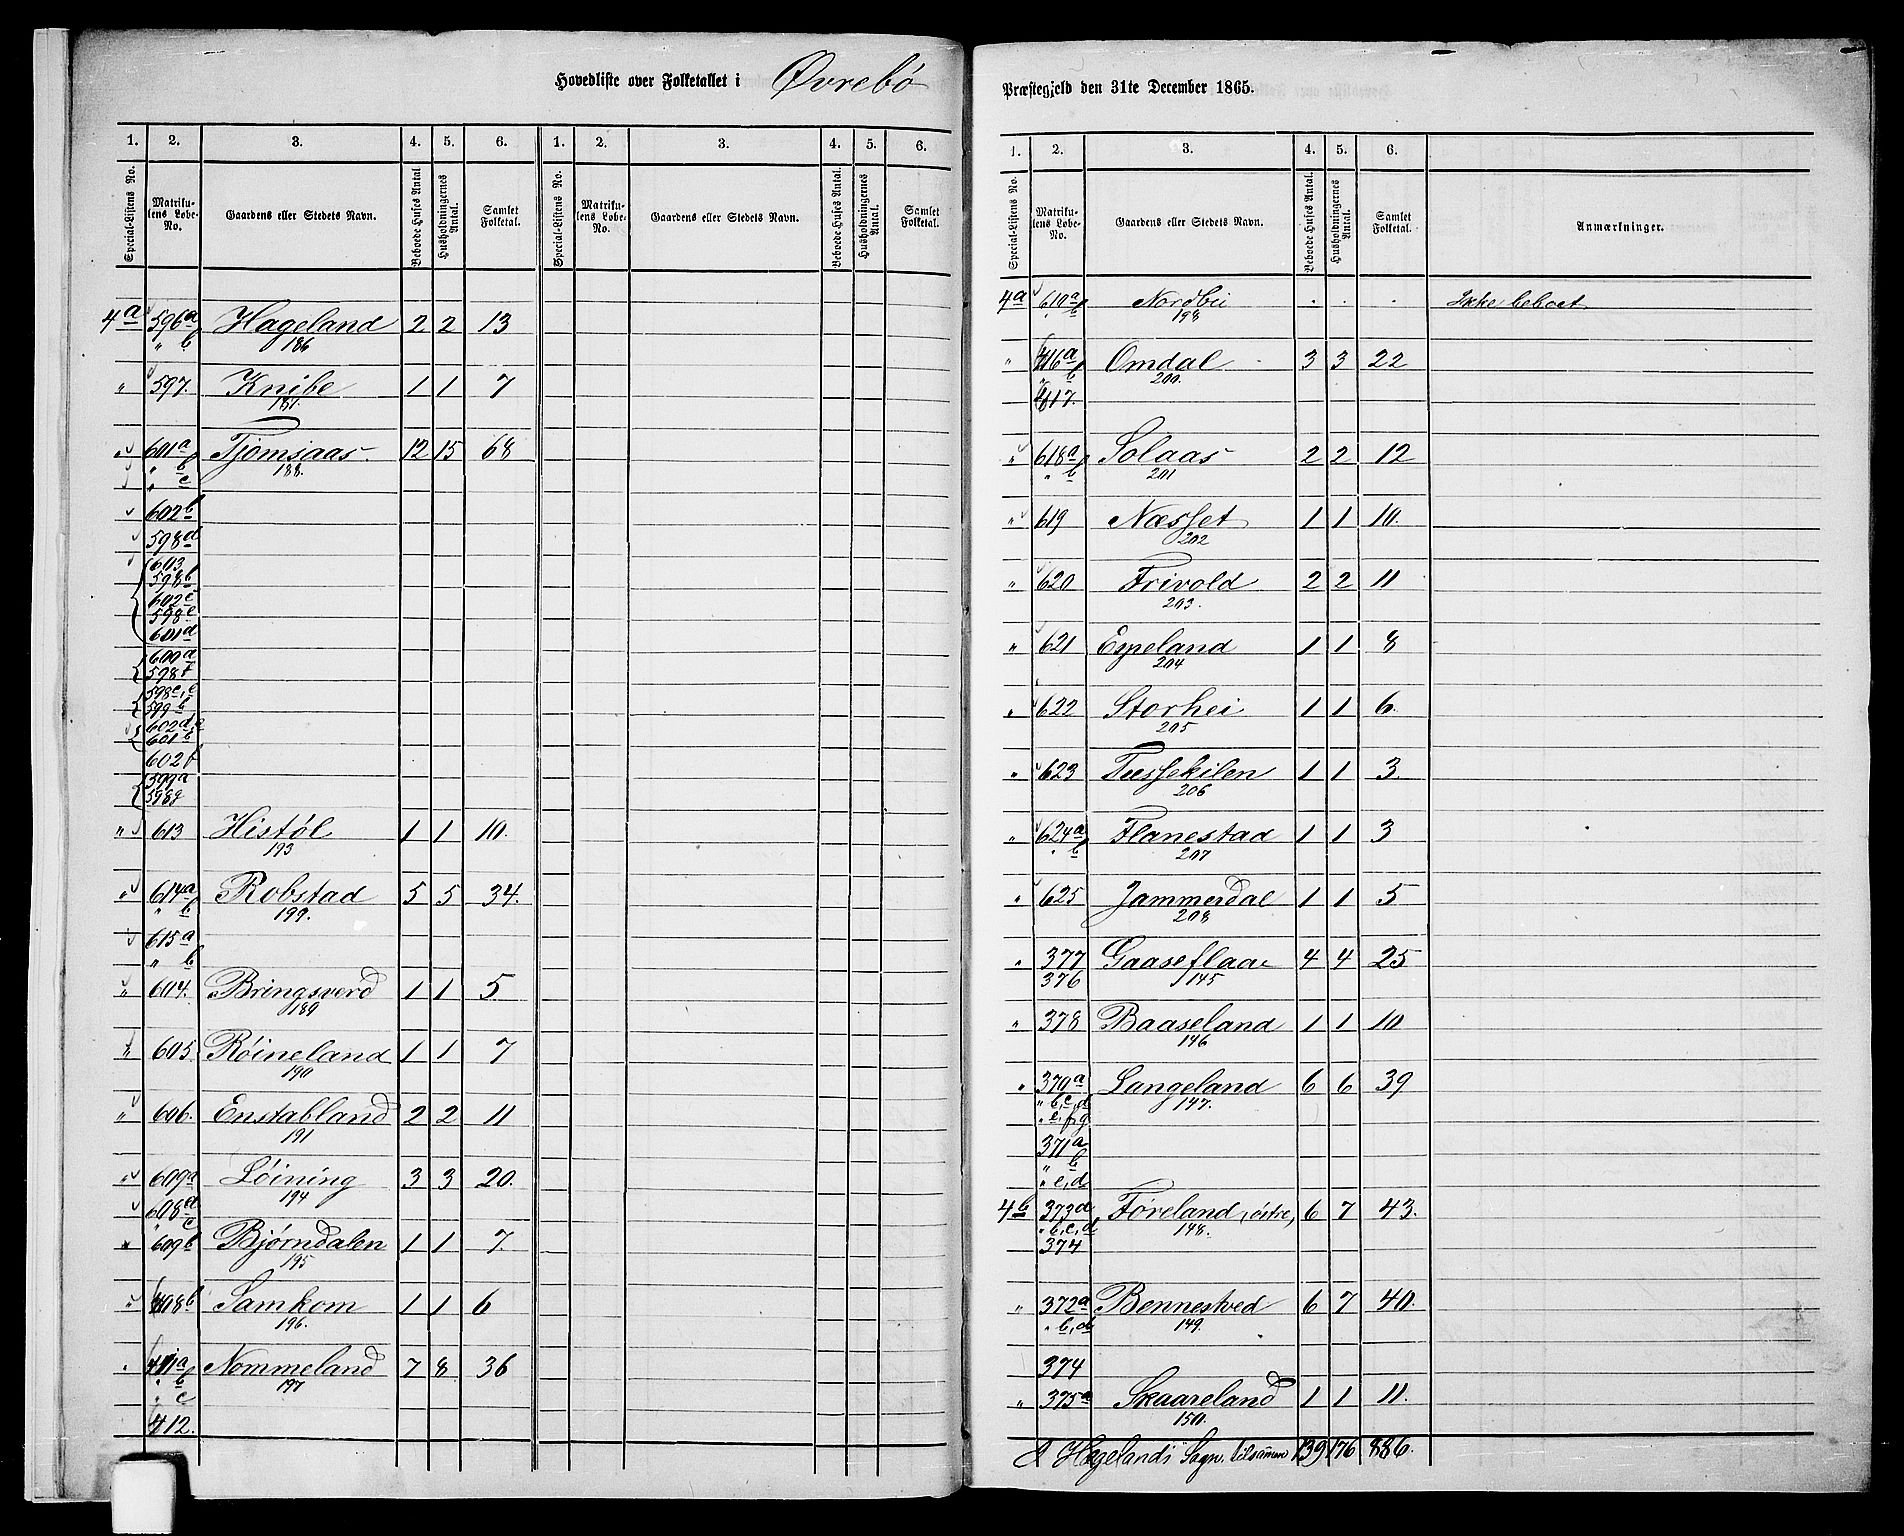 Hovedliste over Folketallet i Øvrebö
1. 2. 3. 4. 5. 6. 1. 2. 3. 4. 5. 6.
Special-Listens No. Matrikulens Løbe-No. Gaardens eller Stedets Navn. Beboede Huses Antal. Husholdningernes Antal. Samlet Folketal. Special-Listens No. Matrikulens Løbe-No. Gaardens eller Stedets Navn. Beboede Huses Antal. Husholdningernes Antal. Samlet Folketal.
4a 596a Hageland 2 2 13
" b 186
" 597. Knibe 1 1 7
187.
" 601a Tjomsaas. 12 15 68
" b 188.
" c
602b
598d
603
598b
602c
598e
601d
600a
598f
598c, e
599b
602d, a
601b
602f
599a
598g
" 613 Histöl 1 1 10.
193
" 614a Robstad 5 5 34.
" b 199.
615a
" b
" 604. Bringsverd 1 1 5
189
" 605. Röineland 1 1 7
190
" 606. Enstabland 2 2 11
191
" 609a Löining 3 3 20.
194
608d
" c
" 609b Bjørndalen 1 1 7.
195
" 608b Samkom 1 1 6
196.
" 411a Nommeland 7 8 36
" b 197
" c
412.
Præstegjeld den 31te December 1865.
1. 2. 3. 4. 5. 6.
Special-Listens No. Matrikulens Løbe-No. Gaardens eller Stedets Navn. Beboede Huses Antal. Husholdningernes Antal. Samlet Folketal. Anmærkninger.
4a 610a Nordbü . . . Ikke beboet
" b 198
" 616a Omdal 3 3 22
" b 200.
617.
" 618a Solaas 2 2 12
" b 201
" 619 Næsset 1 1 10.
202
" 620 Frivold 2 2 11
203.
" 621 Espeland 1 1 8
204
" 622 Storhei 1 1 6.
205
" 623 Tussekilen 1 1 3.
206
" 624a Flanestad 1 1 3
" b 207
" 625 Jammerdal 1 1 5
208
" 377 Gaaseflaa 4 4 25
376 145
" 378 Baaseland 1 1 10
146
" 370a Langeland 6 6 39
" b, c, d 147.
" e, f, g.
371a
" b
" c, d
4b 373a Föreland, östre, 6 7 43.
" b, c, d 148.
374
" 372a Bennestved 6 7 40.
" b, d 149.
374
" 375a Skaareland 1 1 11.
150.
I Hægelands Sogn tilsammen 139 176 886.